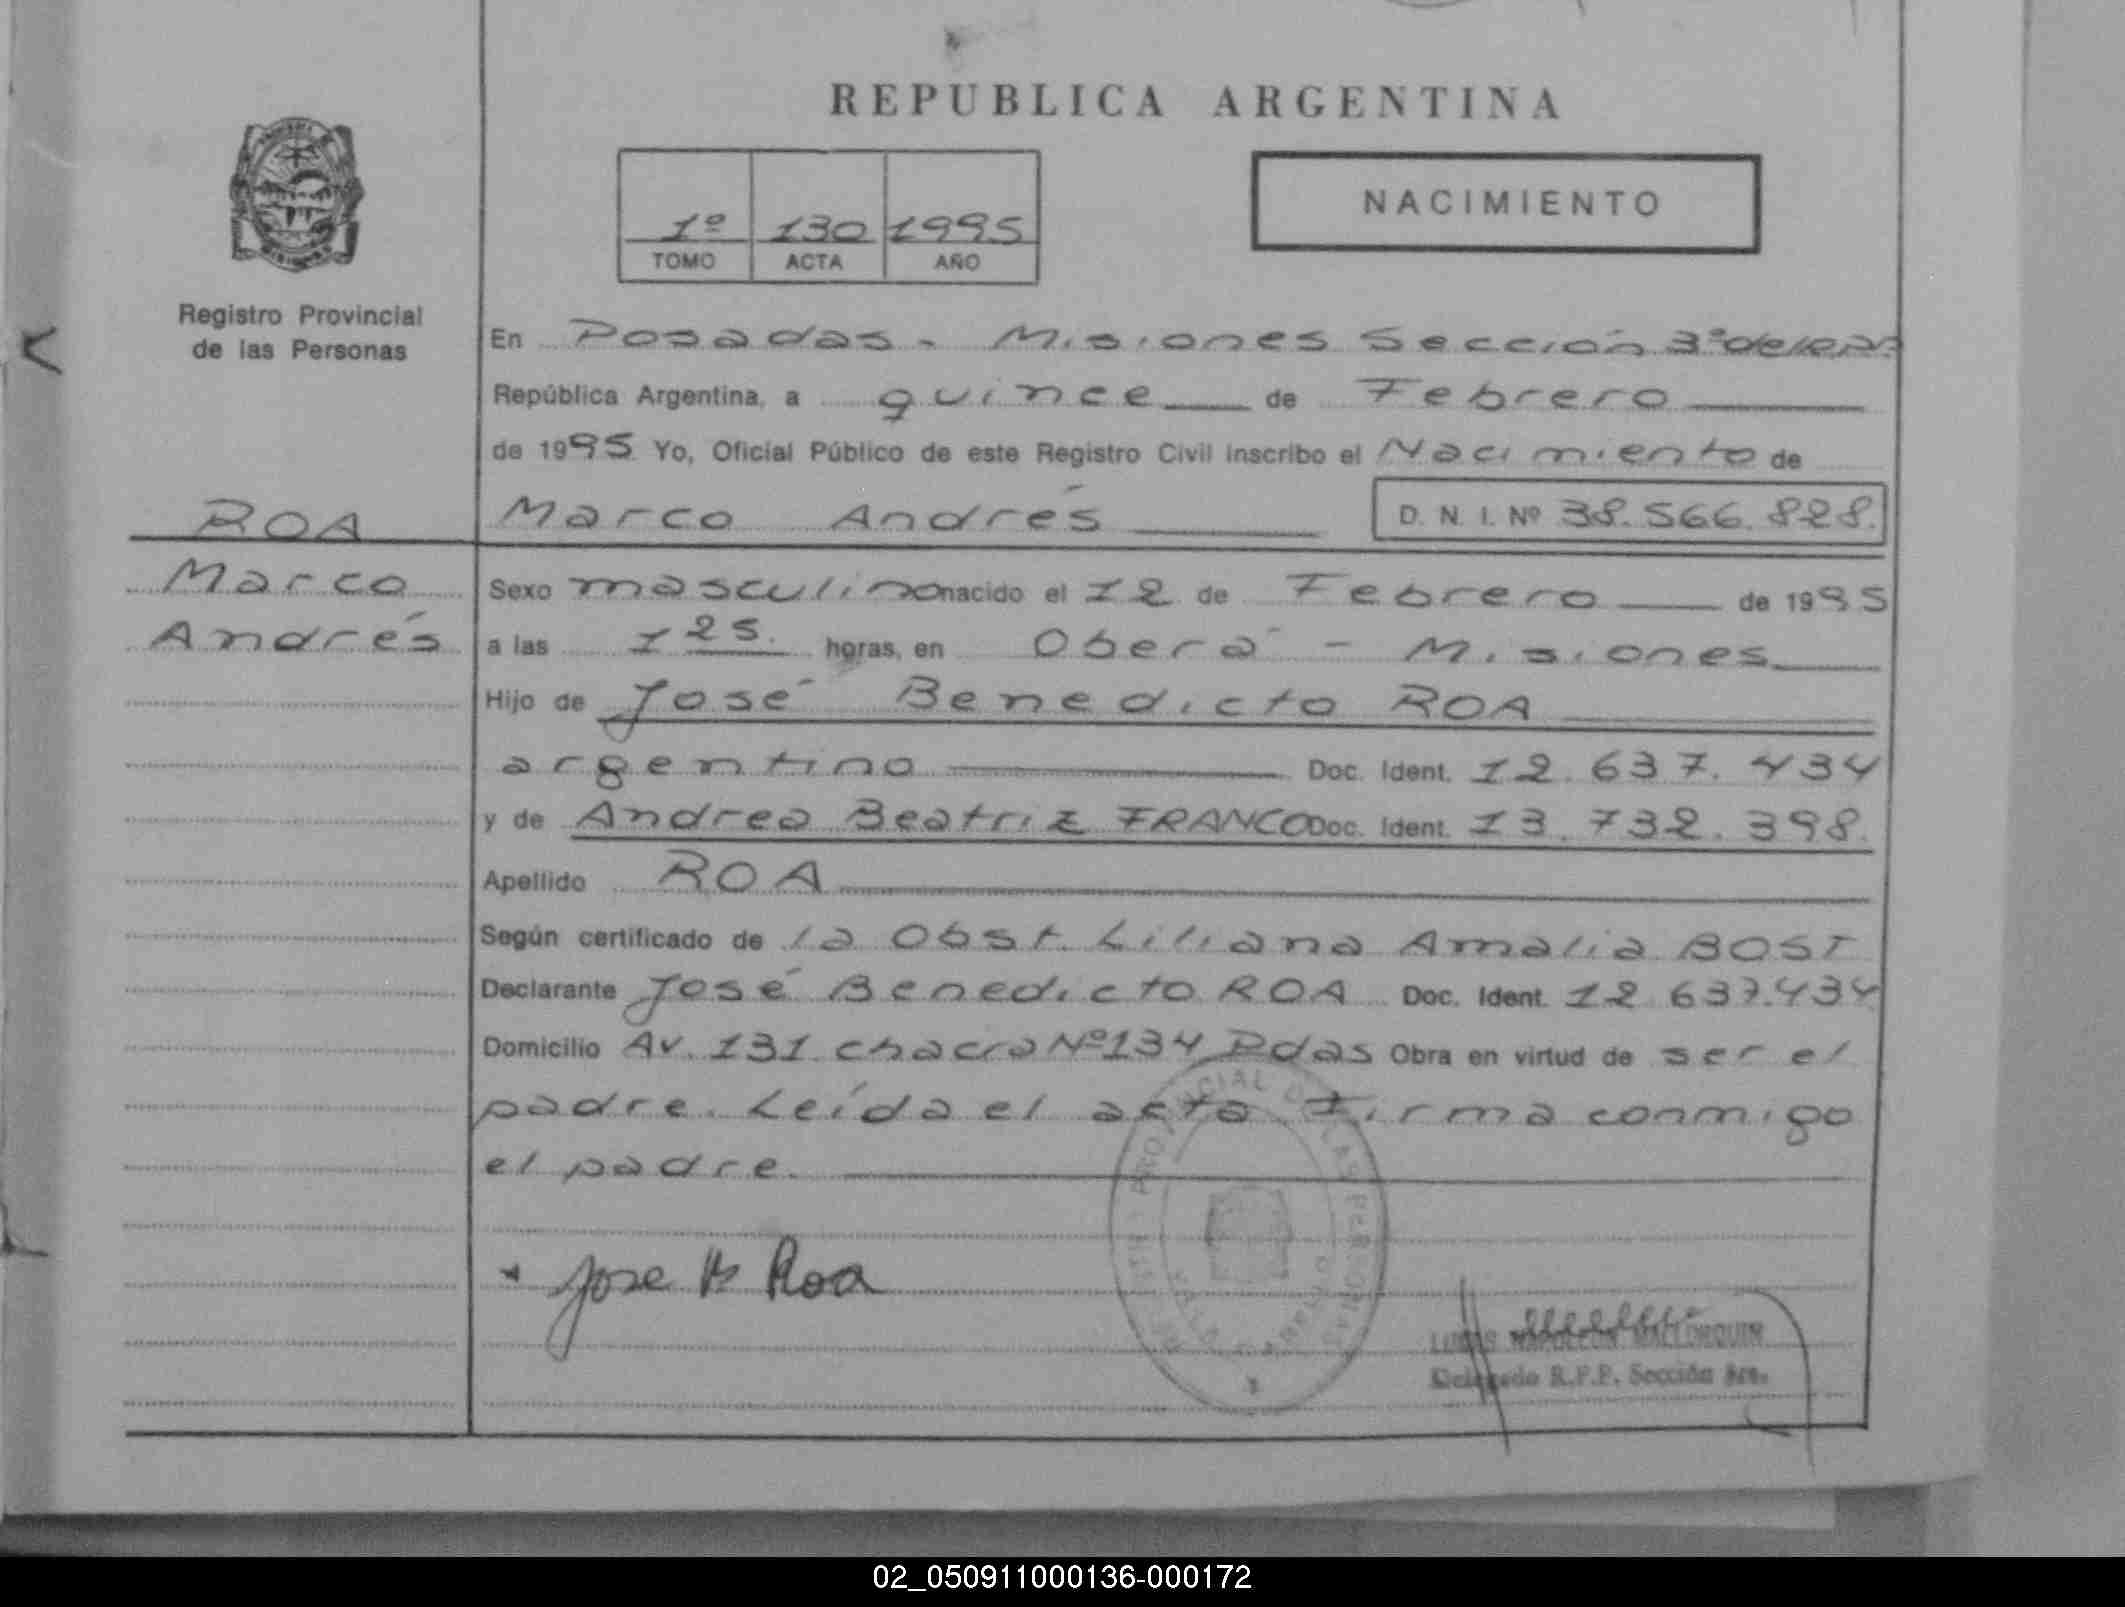 REPUBLICA ARGENTINA
1º 130 1995
TOMO ACTA AÑO
NACIMIENTO
Registro Provincial
de las Personas
En Posadas - Misiones Sección 3ª
República Argentina, a quince de Febrero
de 1995 Yo, Oficial Público de este Registro Civil inscribo el Nacimiento de
ROA
Marco Andrés D. N. I. Nº 38.566.828.
Marco
Andrés
Sexo masculino nacido el 12 de Febrero de 1995
a las 1 25. horas, en Oberá - Misiones
Hijo de José Benedicto ROA
argentino Doc. Ident. 12.637.434
y de Andrea Beatriz FRANCO Doc. Ident. 13.732.398.
Apellido ROA
Según certificado de la Obst. Liliana Amalia BOST
Declarante José Benedicto ROA Doc. Ident. 12 637.434
Domicilio Av. 131 chacra Nº134 Pdas Obra en virtud de ser el
padre. Leída el acta firma conmigo
el padre.
Jose B Roa
LUCAS NAPOLEON MALLORQUIN
Delegado R.P.P. Sección 3ra.
02_050911000136-000172